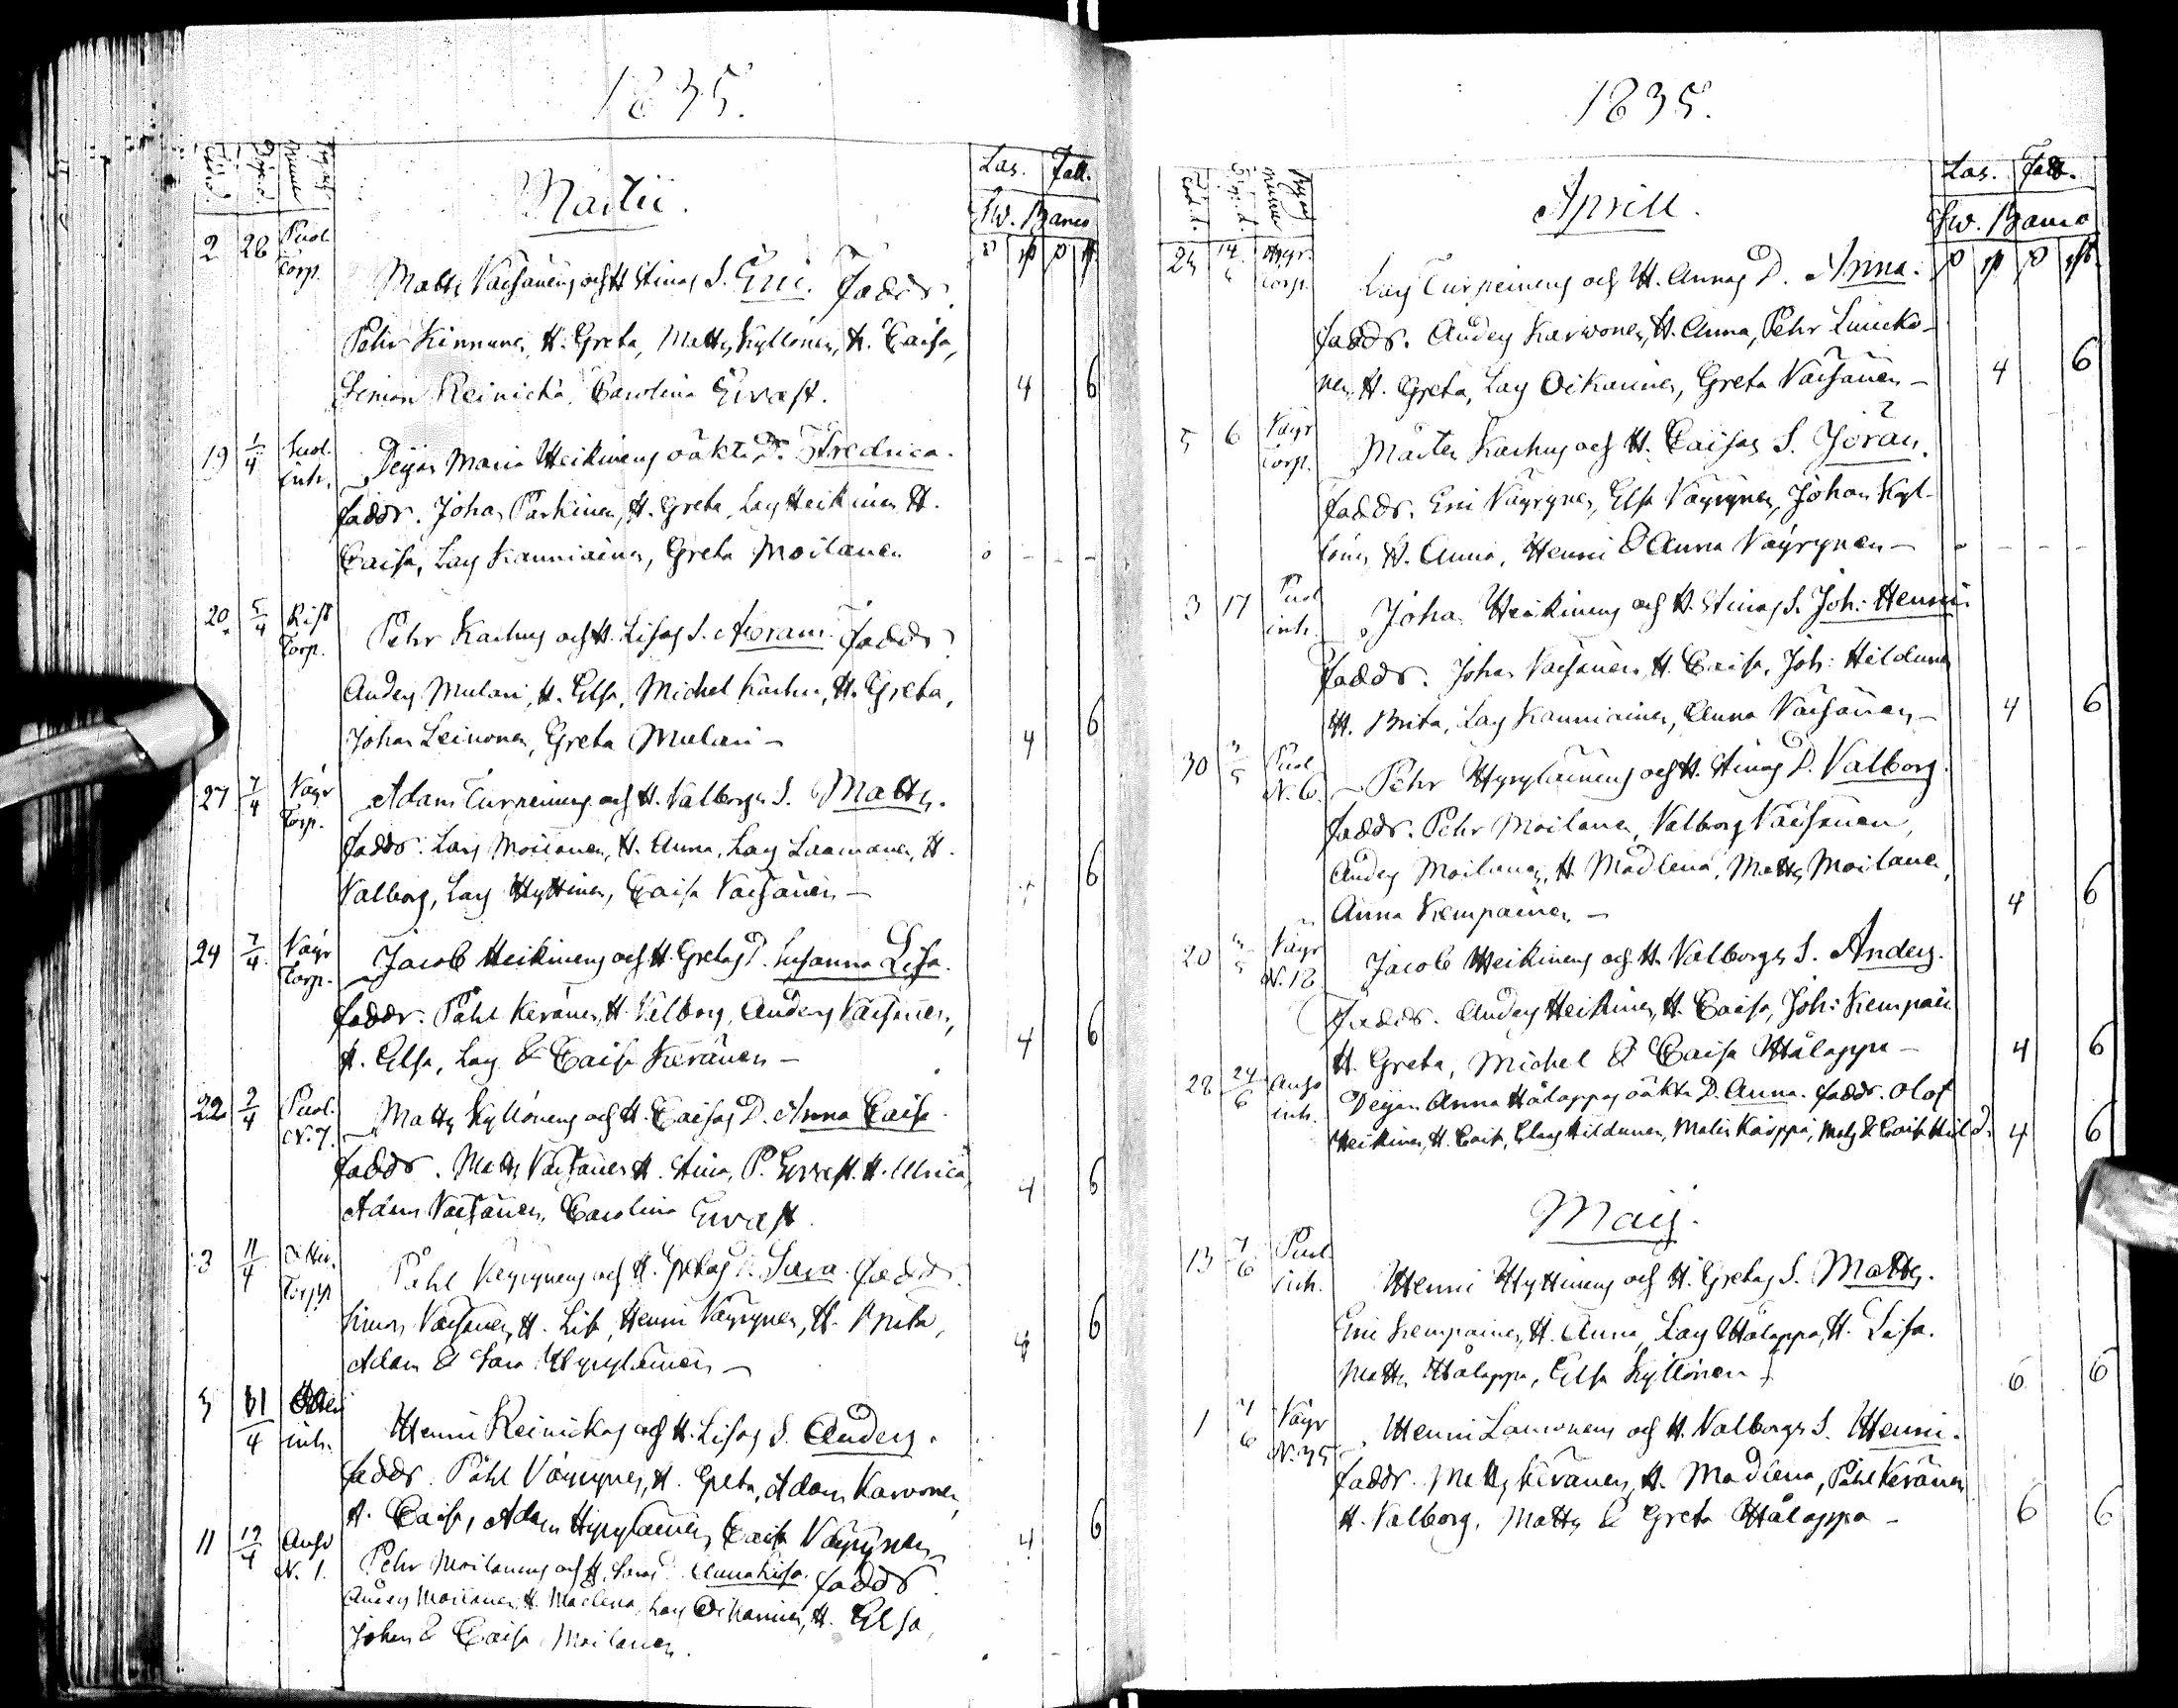 1835.
Martii.
Las. Fatt.
Sw. Banco
2 28 Puol. Torp.
Matts Väisänens och H. Stinas S. Eric. Faddr.
Pehr Kinnunen, H. Greta, Matts Kyllönen, H. Caisa,
Simon Reinickä, Carolina Ervast. 4 6
19 1/4 Suol. inh.
Pigan Maria Heikinens oäkta D. Fredrica.
faddr. Johan Parkinen, H. Greta, Lars Heikinen H.
Caisa, Lars Kanniainen, Greta Moilanen
20 5/4 Rist Torp.
Pehr Karhus och H. Lisas S. Abram. Faddr.
Anders Mulari, H. Elsa, Michel Karhu, H. Greta,
Johan Leinonen, Greta Mulari – 4 6
27 7/4 Väyr Torp.
Adam Turpeinens och H. Valborgs S. Matts.
faddr. Lars Moilanen, H. Anna, Lars Laamanen, H.
Valborg, Lars Hyttinen, Caisa Väisänen – 6
24 7/4 Väyr Torp.
Jacob Heikinens och H. Gretas D. Susanna Lisa.
faddr. Påhl Keränen, H. Valborg, Anders Väisänen,
H. Elsa, Lars & Caisa Keränen – 4 6
22 9/4 Puol. N. 7.
Matts Kyllönens och H. Caisas D. Anna Caisa.
faddr. Matts Väisänen H. Stina, P. Ervast. H. Ulrica,
Adam Väisänen, Carolina Ervast. 4 6
3 11/4 Torp.
Påhl Väyrynens och H. Gretas D. Sara. faddr.
Simon Väisänen, H. Lisa, Henri Väyrynen, H. Brita,
Adam & Sara Hyrylainen – 4 6
5 11/4 inh.
Henri Reinickas och H. Lisas S. Anders.
faddr. Påhl Väyrynen, H. Greta, Adam Karvonen,
H. Caisa, Adam Hyrylainen, Caisa Väyrynen – 4 6
11 19/4 N. 1.
Pehr Moilanens och H. Saras D. Anna Lisa. faddr.
Anders Moilanen, H. Madlena, Lars Oikarinen, H. Elsa,
Johan & Caisa Moilanen.
1835.
Aprill.
Las. Fatt.
Sw. Banco
Torp.
Lars Turpeinens och H. Annas D. Anna.
faddr. Anders Karvonen, H. Anna, Pehr Luucko-
nen, H. Greta, Lars Oikarinen, Greta Väisänen – 4 6
5 6 Väyr Torp.
Mårten Karhus och H. Caisas S. Jöran.
faddr. Eric Väyrynen, Elsa Väyrynen, Johan Kyl-
lönen, H. Anna, Henri & Anna Väyrynen –
3 17 Puol inh.
Johan Heikinens och H. Stinas S. Joh: Henri.
faddr. Johan Väisänen, H. Caisa, Joh: Hildunen
H. Brita, Lars Kanniainen, Anna Väisänen – 4 6
30 3/5 Puol. N. 6.
Pehr Hyrylainens och H. Stinas D. Valborg.
faddr. Pehr Moilanen, Valborg Väisänen,
Anders Moilanen, H. Madlena, Matts Moilanen,
Anna Kempainen – 4 6
20 Väyr N. 18
Jacob Heikinens och H. Valborgs S. Anders.
faddr. Anders Heikinen, H. Caisa, Joh: Kempain
H. Greta, Michel & Caisa Hålappa – 4 6
28 24/6 inh.
Pigan Anna Hålappas oäkta D. Anna. faddr. Olof
Heikinen, H. Caisa, Clas Hildunen, Malin Karppi, Mats & Caisa Hild. 4 6
Maij.
13 7/6 Puol. inh.
Henri Hyttinens och H. Gretas S. Matts.
Eric Kempainen, H. Anna, Lars Hålappa, H. Lisa.
Matts Hålappa, Elsa Kyllönen – 6 6
1 7/6 Väyr N. 35
Henri Lamonens och H. Valborgs S. Henri.
faddr. Matts Keränen, H. Madlena, Påhl Keränen
H. Valborg, Matts & Greta Hålappa – 6 6